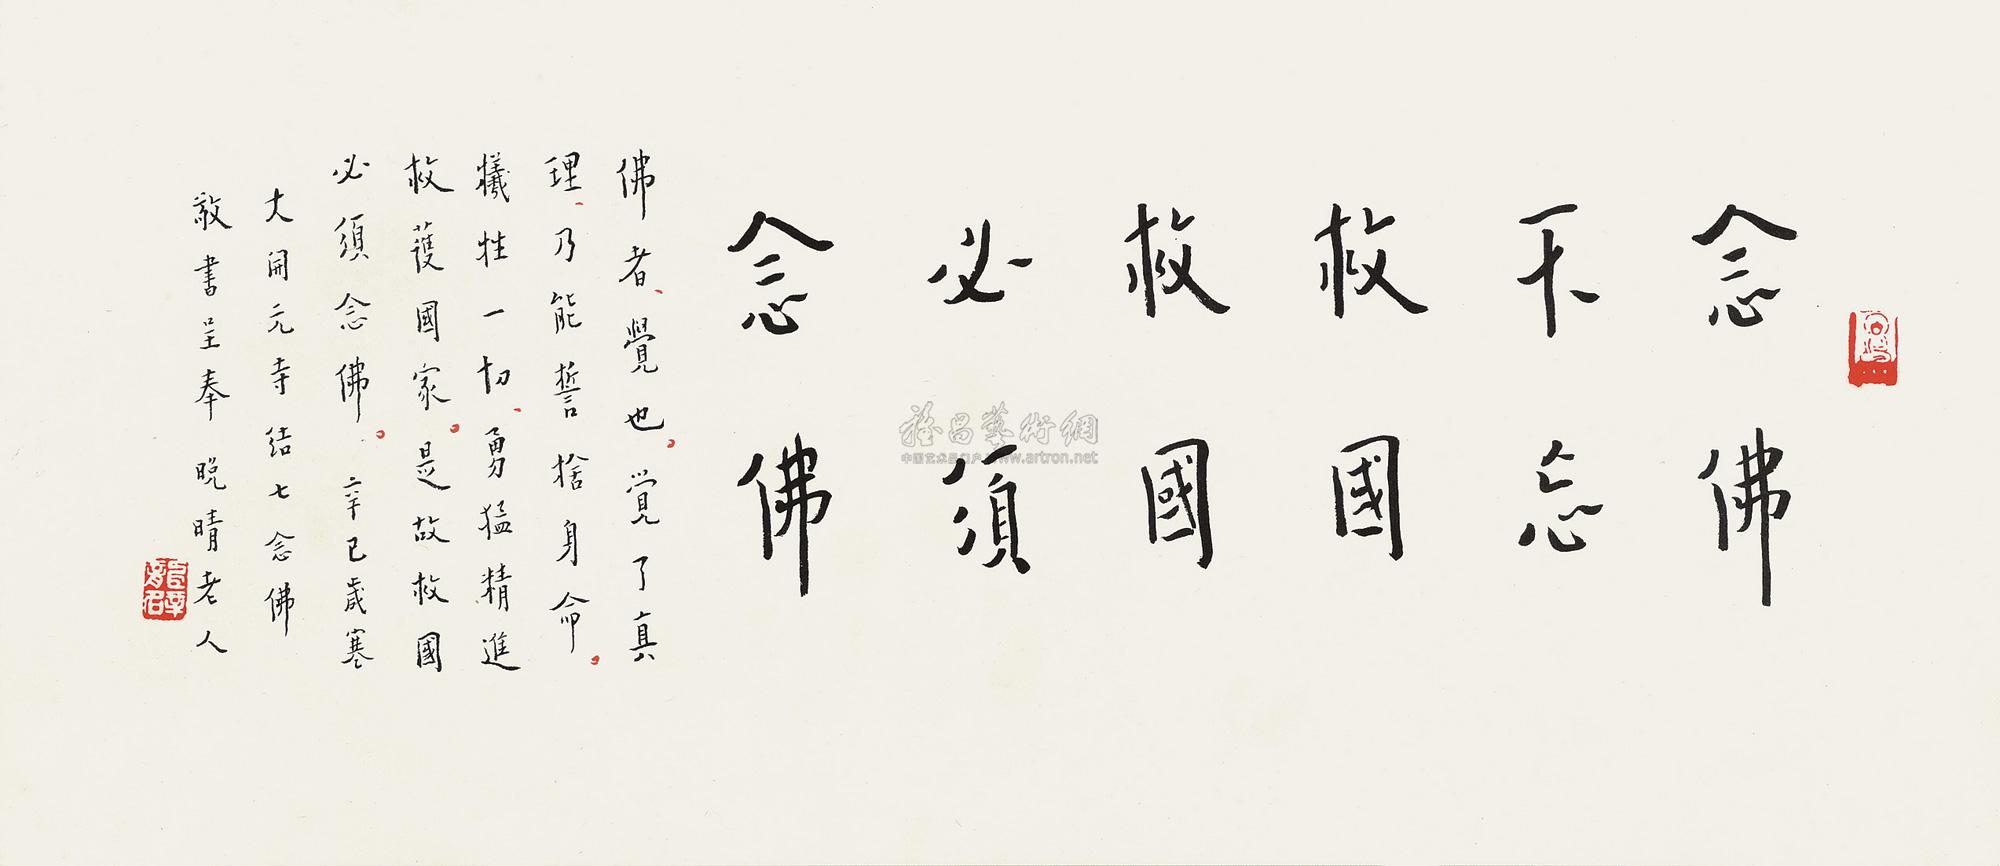 念佛
不忘
救國
救國
必須
念佛
佛者、覺也。覺了真
理、乃能誓捨身命。
犧牲一切、勇猛精進
救護國家。是故救國
必須念佛。辛巳歲寒
大開元寺結七念佛
敬書呈奉晚晴老人
雅昌藝術網
中国艺术品门户 www.artron.net